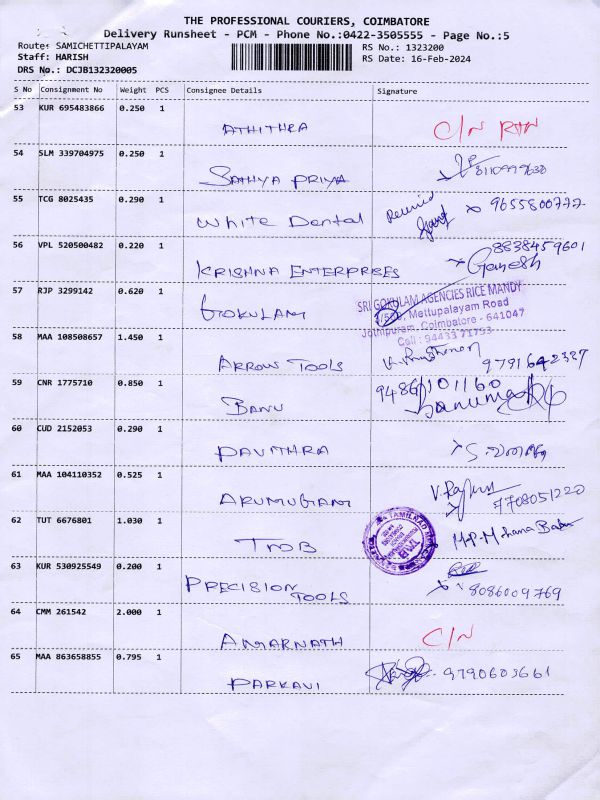 THE PROFESSIONAL COURIERS, COIMBATORE
Delivery Runsheet - PCM - Phone No.:0422-3505555 - Page No.:5
Route: SAMICHETTIPALAYAM RS No.: 1323200
Staff: HARISH RS Date: 16-Feb-2024
DRS No.: DCJB132320005
S No Consignment No Weight PCS Consignee Details Signature
53 KUR 695483866 0.250 1
ATHITHRA C/N RTN
54 SLM 339704975 0.250 1
SATHYA PRIYA 8110999630
55 TCG 8025435 0.290 1
White Dental Received 9655800772
56 VPL 520500482 0.220 1 8838459601
KRISHNA ENTERPRISES Ganesh
57 RJP 3299142 0.620 1
GOKULAM SRI GOKULAM AGENCIES RICE MANDY
Mettupalayam Road
Jothipuram, Coimbatore - 641047
Cell : 94433 71793
58 MAA 108508657 1.450 1
ARROW TOOLS 9791642337
59 CNR 1775710 0.850 1 9486101160
BANU
60 CUD 2152053 0.290 1
PAVITHRA
61 MAA 104110352 0.525 1
ARUMUGAM V. Rajesh 7708051220
62 TUT 6676801 1.030 1
TMB TAMILNAD TMB M.P. Mohana Babu
63 KUR 530925549 0.200 1
PRECISION TOOLS 8086009769
64 CMM 261542 2.000 1
AMARNATH C/N
65 MAA 863658855 0.795 1
PARKAVI 9790603661